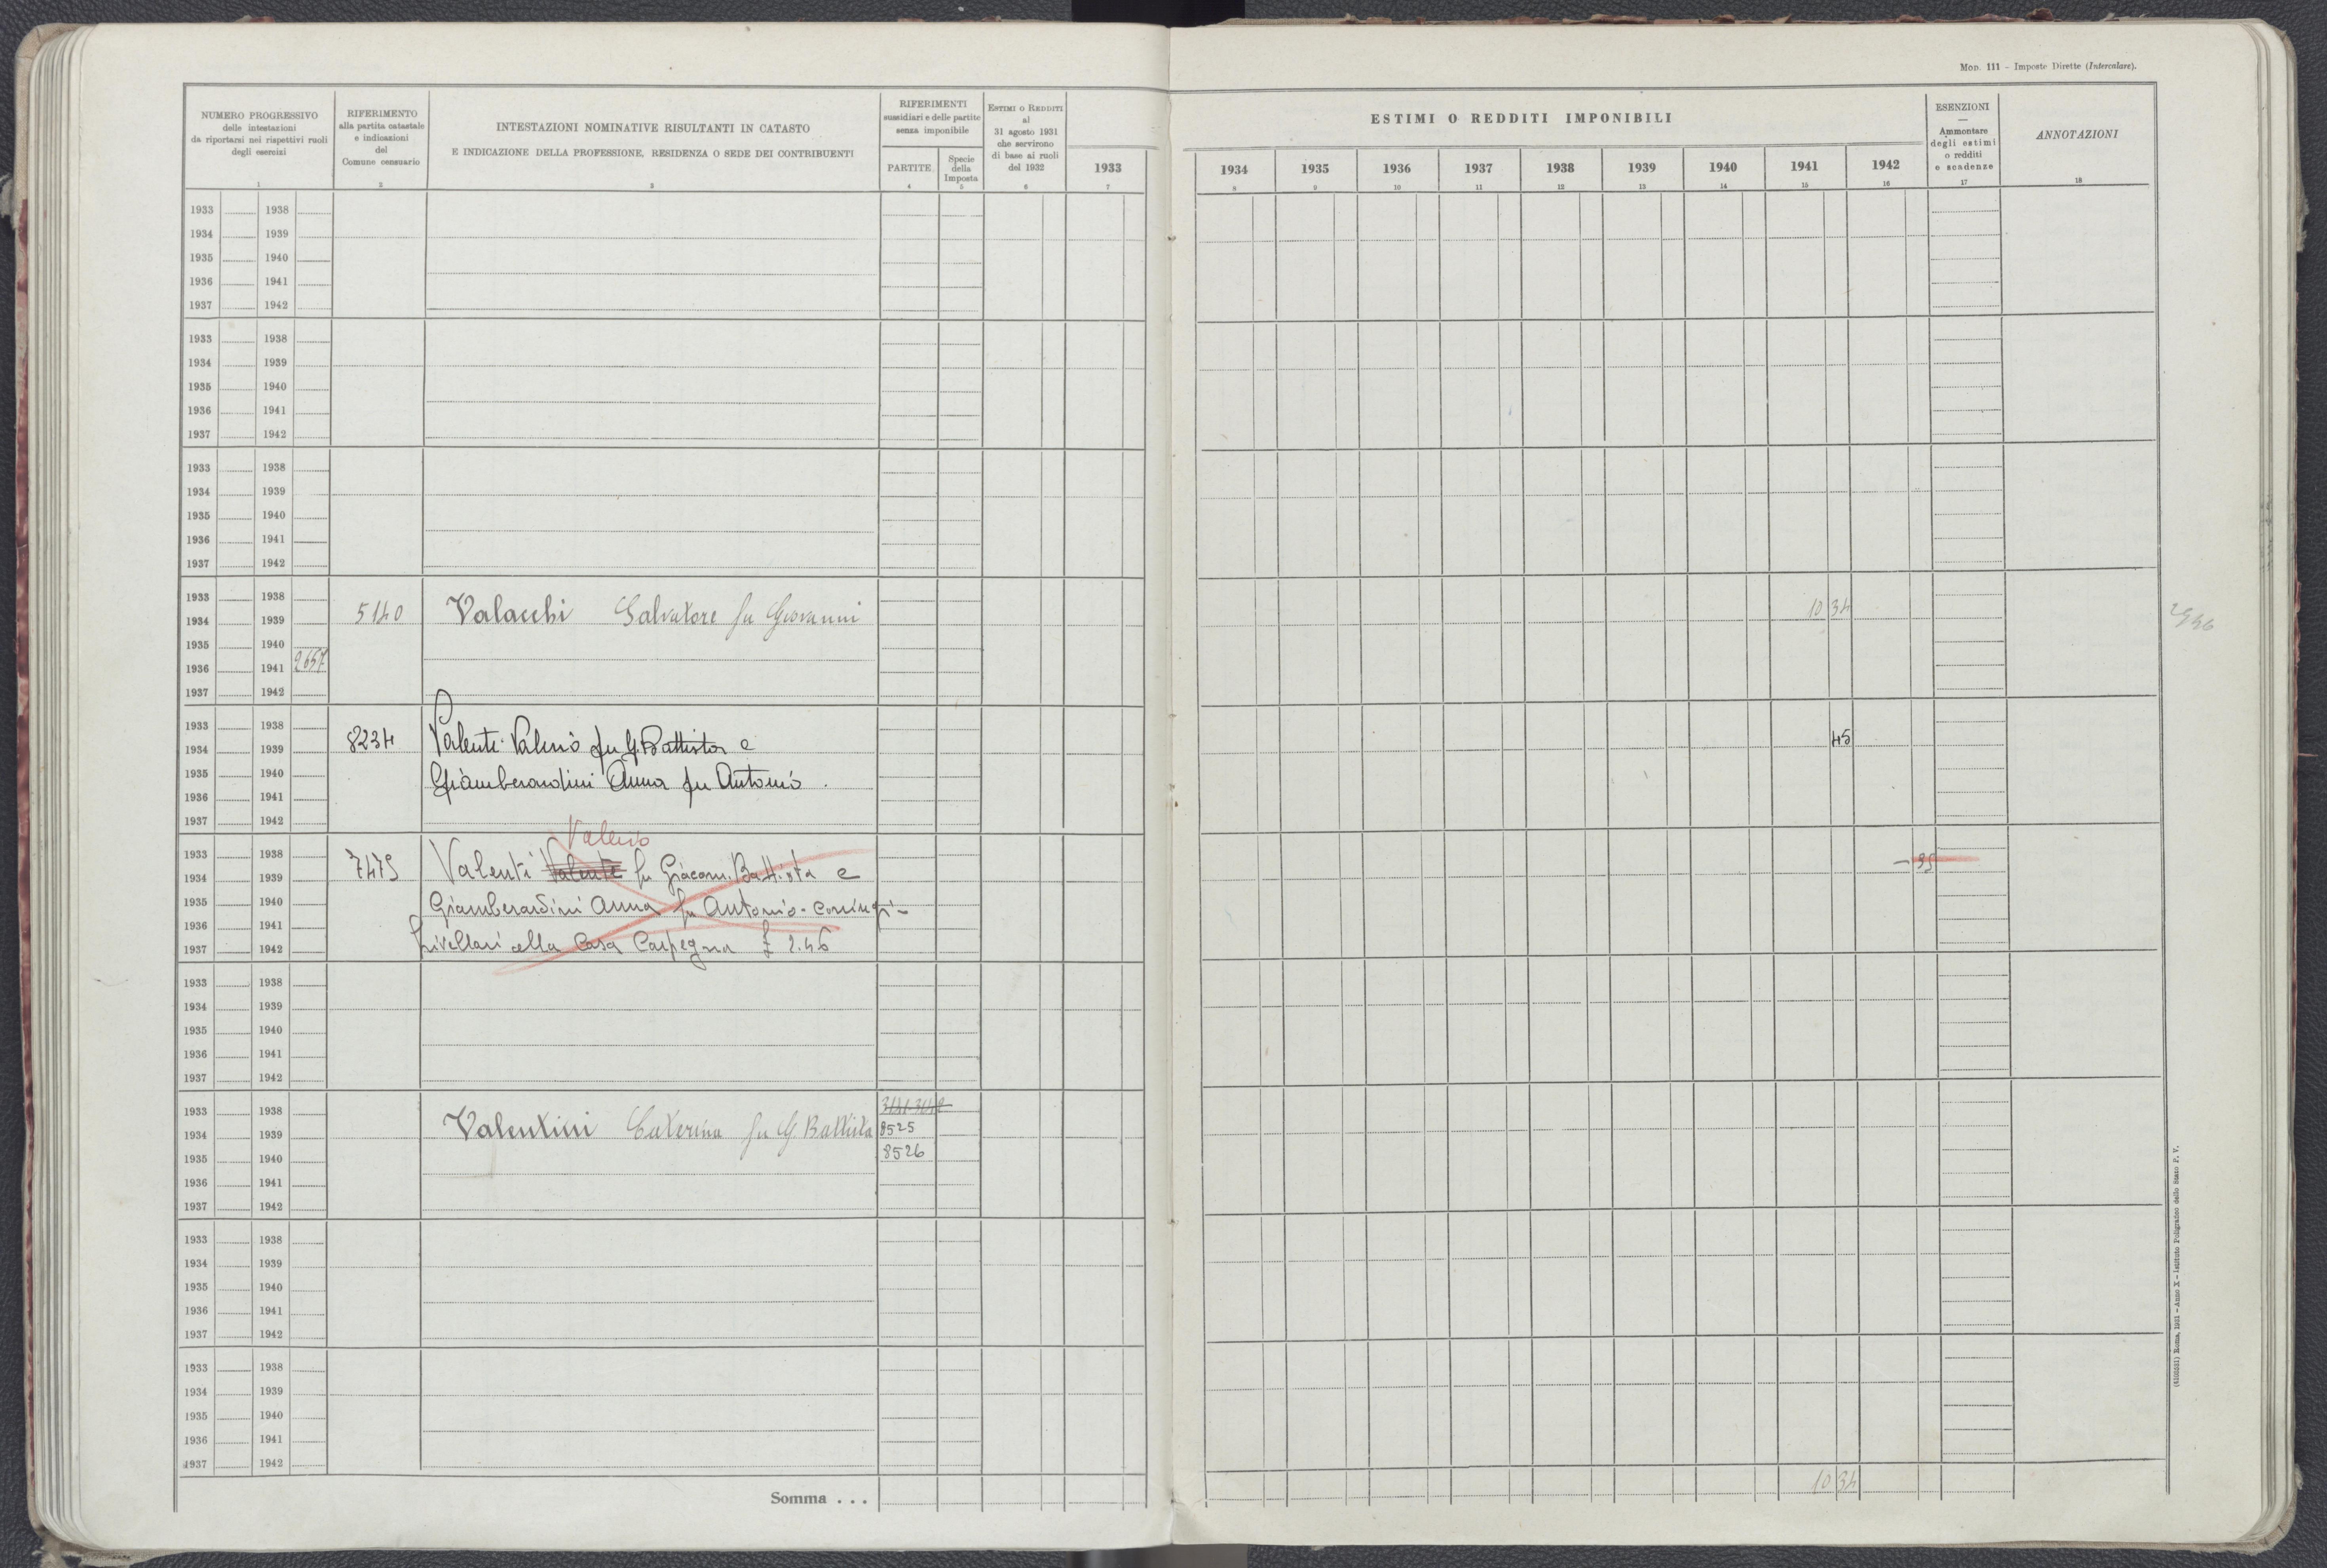 MOD. 111 - Imposte Dirette (Intercalare).
NUMERO PROGRESSIVO
delle intestazioni
da riportarsi nei rispettivi ruoli
degli esercizi
1
RIFERIMENTO
alla partita catastale
e indicazioni
del
Comune censuario
2
INTESTAZIONI NOMINATIVE RISULTANTI IN CATASTO
E INDICAZIONE DELLA PROFESSIONE, RESIDENZA O SEDE DEI CONTRIBUENTI
3
RIFERIMENTI
sussidiari e delle partite
senza imponibile
PARTITE
4
Specie
della
Imposta
5
ESTIMI O REDDITI
al
31 agosto 1931
che servirono
di base ai ruoli
del 1932
6
1933
7
ESTIMI O REDDITI IMPONIBILI
1934 1935 1936 1937 1938 1939 1940 1941 1942
8 9 10 11 12 13 14 15 16
ESENZIONI
—
Ammontare
degli estimi
o redditi
e scadenze
17
ANNOTAZIONI
18
1933 1938
1934 1939
1935 1940
1936 1941
1937 1942
1933 1938
1934 1939
1935 1940
1936 1941
1937 1942
1933 1938
1934 1939
1935 1940
1936 1941
1937 1942
1933 1938
1934 1939 5140 Valacchi Salvatore fu Giovanni 10 34
1935 1940
1936 1941 2657
1937 1942
1933 1938
1934 1939 8234 Valenti Valerio fu G. Battista e 45
1935 1940 Giamberardini Anna fu Antonio.
1936 1941
1937 1942
Valerio
1933 1938
1934 1939 7475 Valenti Valente fu Giacom. Battista e - 35
1935 1940
Giamberardini Anna fu Antonio - coniugi -
1936 1941
1937 1942 livellari alla Casa Carpegna £ 2.46
1933 1938
1934 1939
1935 1940
1936 1941
1937 1942
1933 1938
1934 1939 Valentini Caterina fu G. Battista 8525
1935 1940 8526
1936 1941
1937 1942
1933 1938
1934 1939
1935 1940
1936 1941
1937 1942
1933 1938
1934 1939
1935 1940
1936 1941
1937 1942
Somma . . . 10 34
Roma, 1931 - Anno X - Istituto Poligrafico dello Stato P. V.